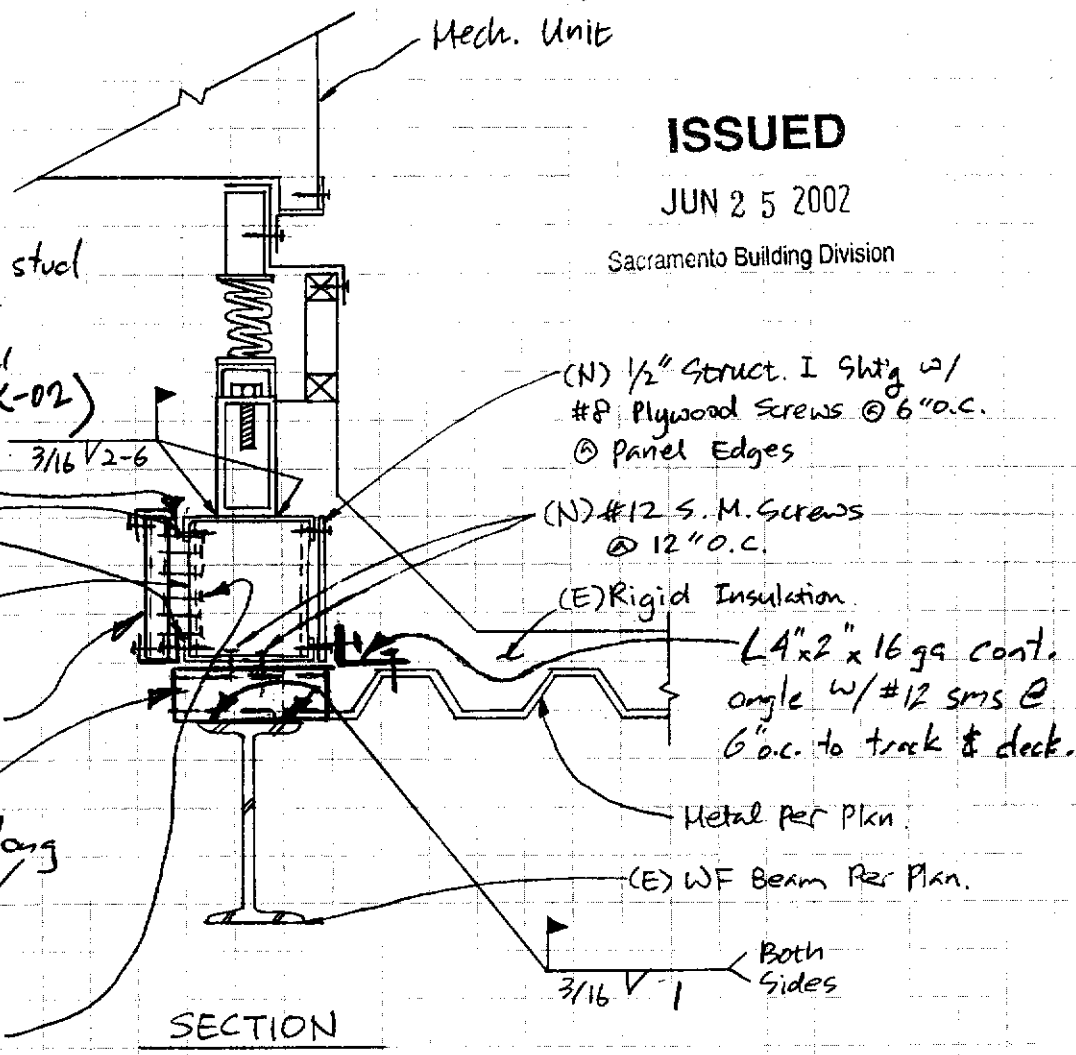 Mech. Unit
ISSUED
JUN 25 2002
Sacramento Building Division
stud
(-02)
3/16 2-6
(N) 1/2" Struct. I Sht'g w/
#8 Plywood Screws @ 6" O.C.
@ Panel Edges
(N) #12 S.M. Screws
@ 12" O.C.
(E) Rigid Insulation
L4"x2"x16 ga cont.
angle w/ #12 sms @
6" o.c. to track & deck.
Metal Per Plan.
ong
(E) WF Beam Per Plan.
3/16 1
Both
Sides
SECTION